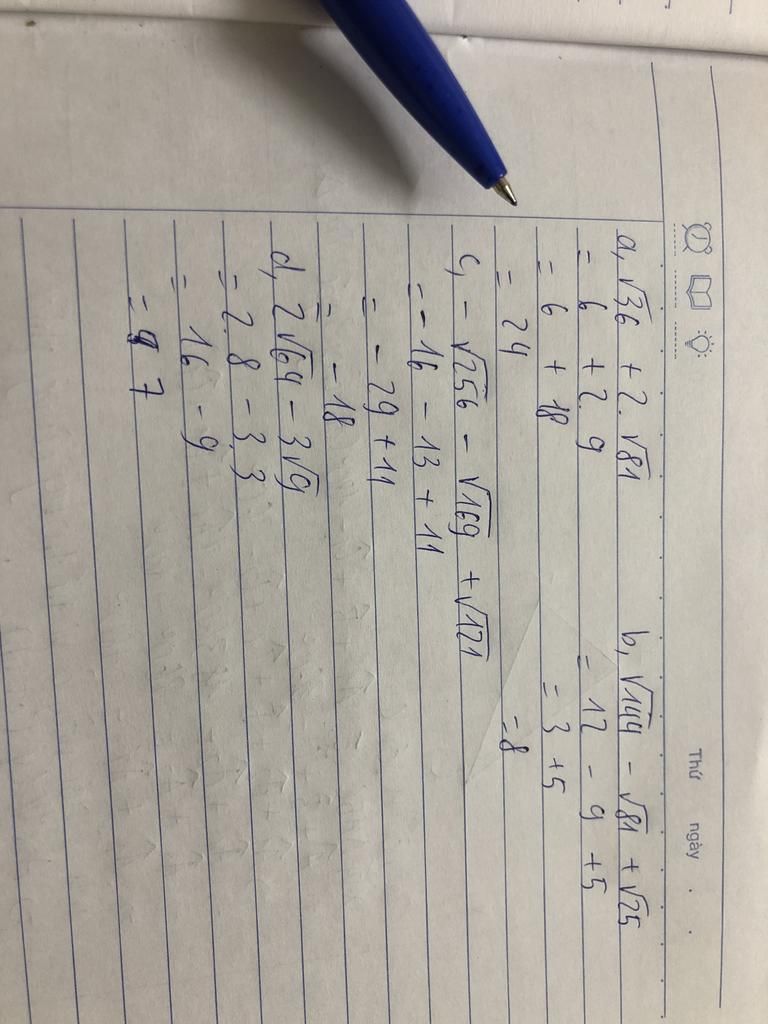 Thứ ngày . .
a, √36 + 2.√81
= 6 + 2.9
= 6 + 18
= 24
b, √144 - √81 + √25
= 12 - 9 + 5
= 3 + 5
= 8
c, - √256 - √169 + √121
= - 16 - 13 + 11
= - 29 + 11
= - 18
d, 2√64 - 3√9
= 2.8 - 3.3
= 16 - 9
= 7